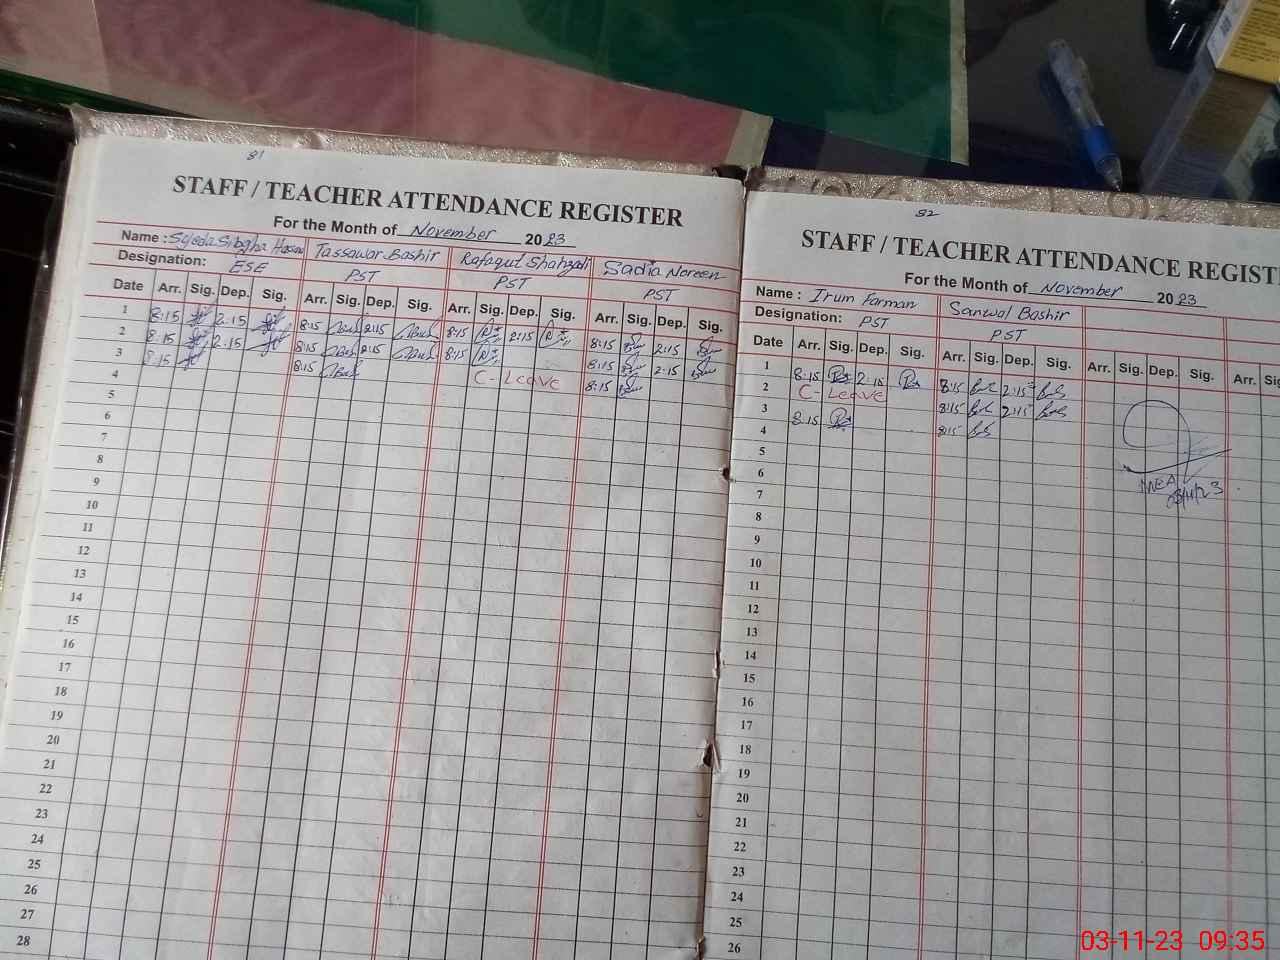 81
STAFF / TEACHER ATTENDANCE REGISTER
For the Month of November 2023
Name : Syeda Sibgha Hassan Tassawar Bashir Rafaqut Shahzadi Sadia Noreen
Designation: ESE PST PST PST
Date Arr. Sig. Dep. Sig. Arr. Sig. Dep. Sig. Arr. Sig. Dep. Sig. Arr. Sig. Dep. Sig.
1 8:15 2:15 8:15 2:15 8:15 2:15 8:15 2:15
2 8:15 2:15 8:15 2:15 8:15 8:15 2:15
3 8:15 8:15 C-Leave 8:15
4
5
6
7
8
9
10
11
12
13
14
15
16
17
18
19
20
21
22
23
24
25
26
27
28
82
STAFF / TEACHER ATTENDANCE REGISTE
For the Month of November 2023
Name : Irum Farman Sanwal Bashir
Designation: PST PST
Date Arr. Sig. Dep. Sig. Arr. Sig. Dep. Sig. Arr. Sig. Dep. Sig. Arr. Si
1 8:15 2:15 8:15 2:15
2 C-Leave 8:15 2:15
3 8:15 8:15
4
5
6
7
8
9
10
11
12
13
14
15
16
17
18
19
20
21
22
23
24
25
26
MEA
03/11/23
03-11-23 09:35